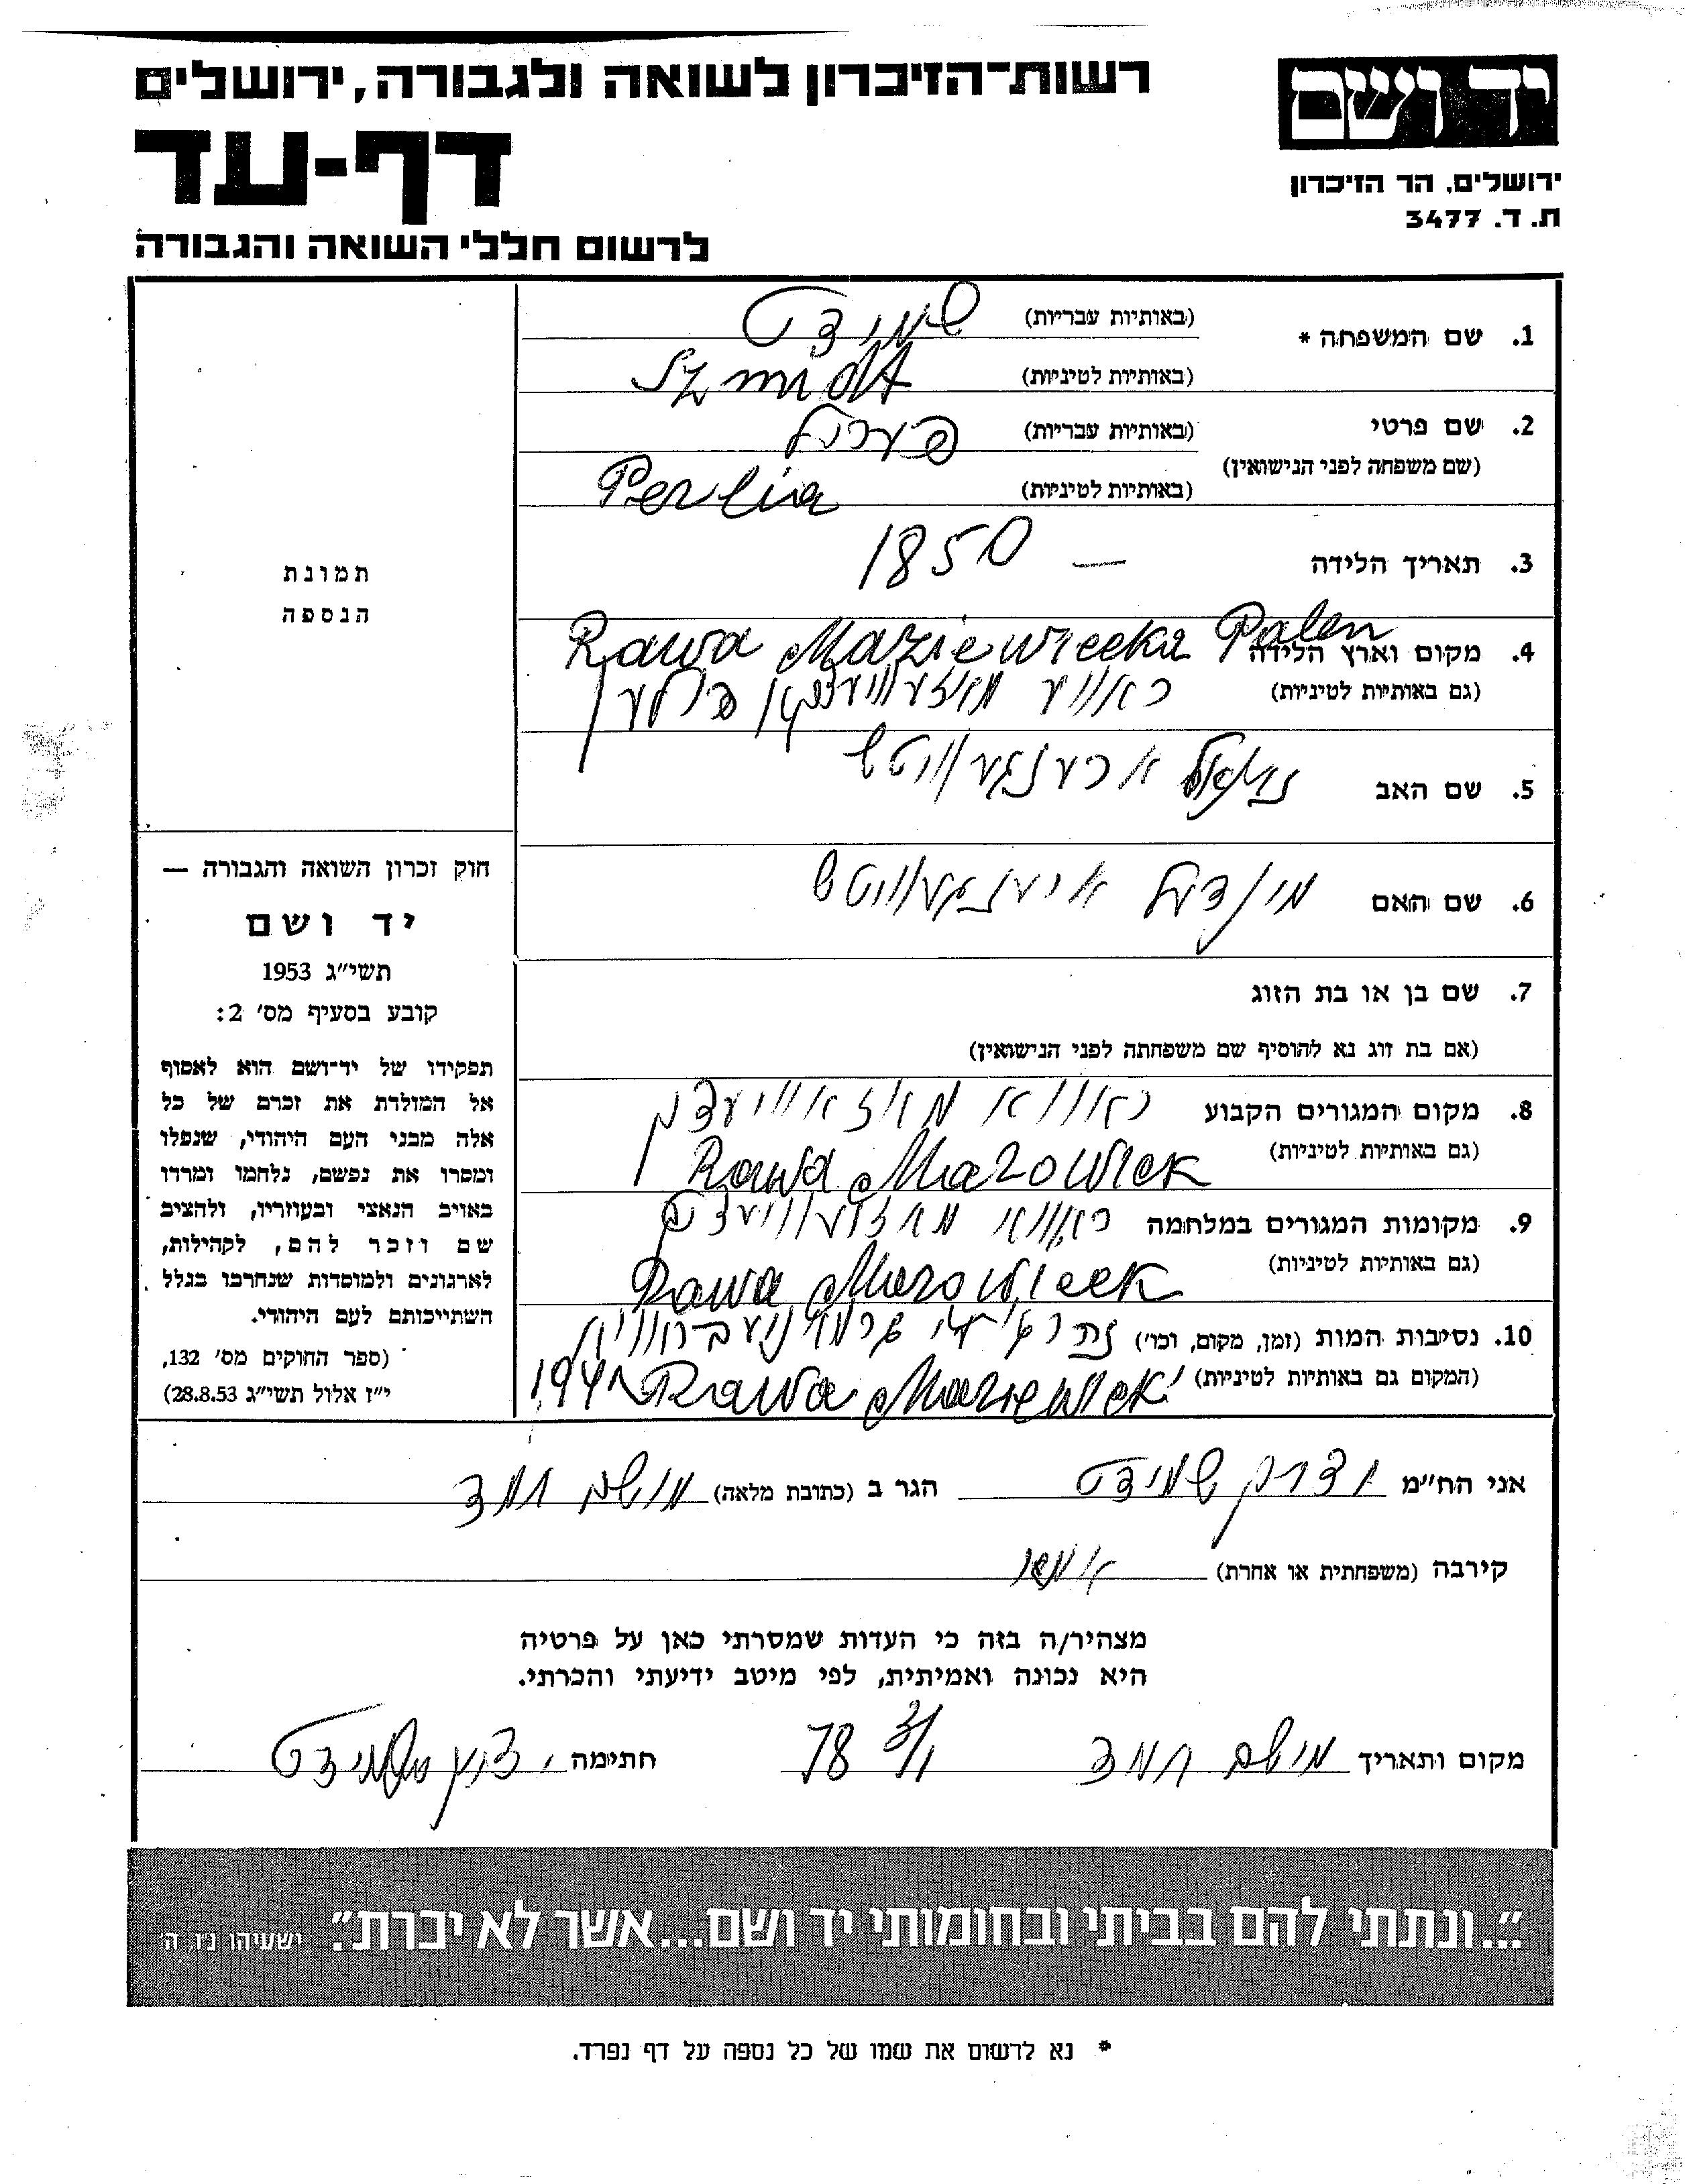 רשות־הזיכרון לשואה ולגבורה, ירושלים
יד ושם
דף-עד
ירושלים, הר הזיכרון
ת. ד. 3477
לרשום חללי השואה והגבורה
1. שם המשפחה *
(באותיות עבריות) שמידט
(באותיות לטיניות) Szmidt
2. שם פרטי
(שם משפחה לפני הנישואין)
(באותיות עבריות)
(באותיות לטיניות) Perlia
3. תאריך הלידה — 1850
4. מקום וארץ הלידה Rawa Maziewiecka Polen
(גם באותיות לטיניות)
5. שם האב
6. שם האם
7. שם בן או בת הזוג
(אם בת זוג נא להוסיף שם משפחתה לפני הנישואין)
8. מקום המגורים הקבוע
(גם באותיות לטיניות) Rawa Mazowiek
9. מקומות המגורים במלחמה
(גם באותיות לטיניות) Rawa Mazowieck
10. נסיבות המות (זמן, מקום, וכו')
(המקום גם באותיות לטיניות) Rawa Maziewiek
תמונת
הנספה
חוק זכרון השואה והגבורה —
יד ושם
תשי״ג 1953
קובע בסעיף מס׳ 2:
תפקידו של יד־ושם הוא לאסוף
אל המולדת את זכרם של כל
אלה מבני העם היהודי, שנפלו
ומסרו את נפשם, נלחמו ומרדו
באויב הנאצי ובעוזריו, ולהציב
שם וזכר להם, לקהילות,
לארגונים ולמוסדות שנחרבו בגלל
השתייכותם לעם היהודי.
(ספר החוקים מס׳ 132,
י״ז אלול תשי״ג 28.8.53)
אני הח״מ שמידט הגר ב (כתובת מלאה) מושב חמד
קירבה (משפחתית או אחרת)
מצהיר/ה בזה כי העדות שמסרתי כאן על פרטיה
היא נכונה ואמיתית, לפי מיטב ידיעתי והכרתי.
מקום ותאריך מושב חמד 78 חתימה שמידט
״...ונתתי להם בביתי ובחומותי יד ושם...אשר לא יכרת״. ישעיהו נ״ו, ה׳
* נא לרשום את שמו של כל נספה על דף נפרד.